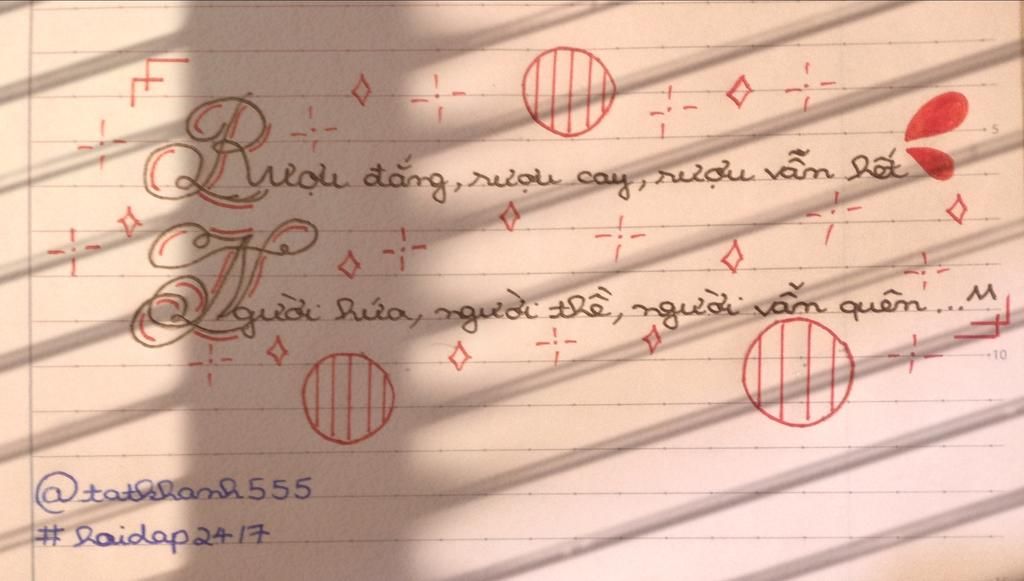 Rượu đắng, rượu cay, rượu vẫn hết
Người hứa, người thề, người vẫn quên...
@tatkhanh555
#haidap2417
5
10